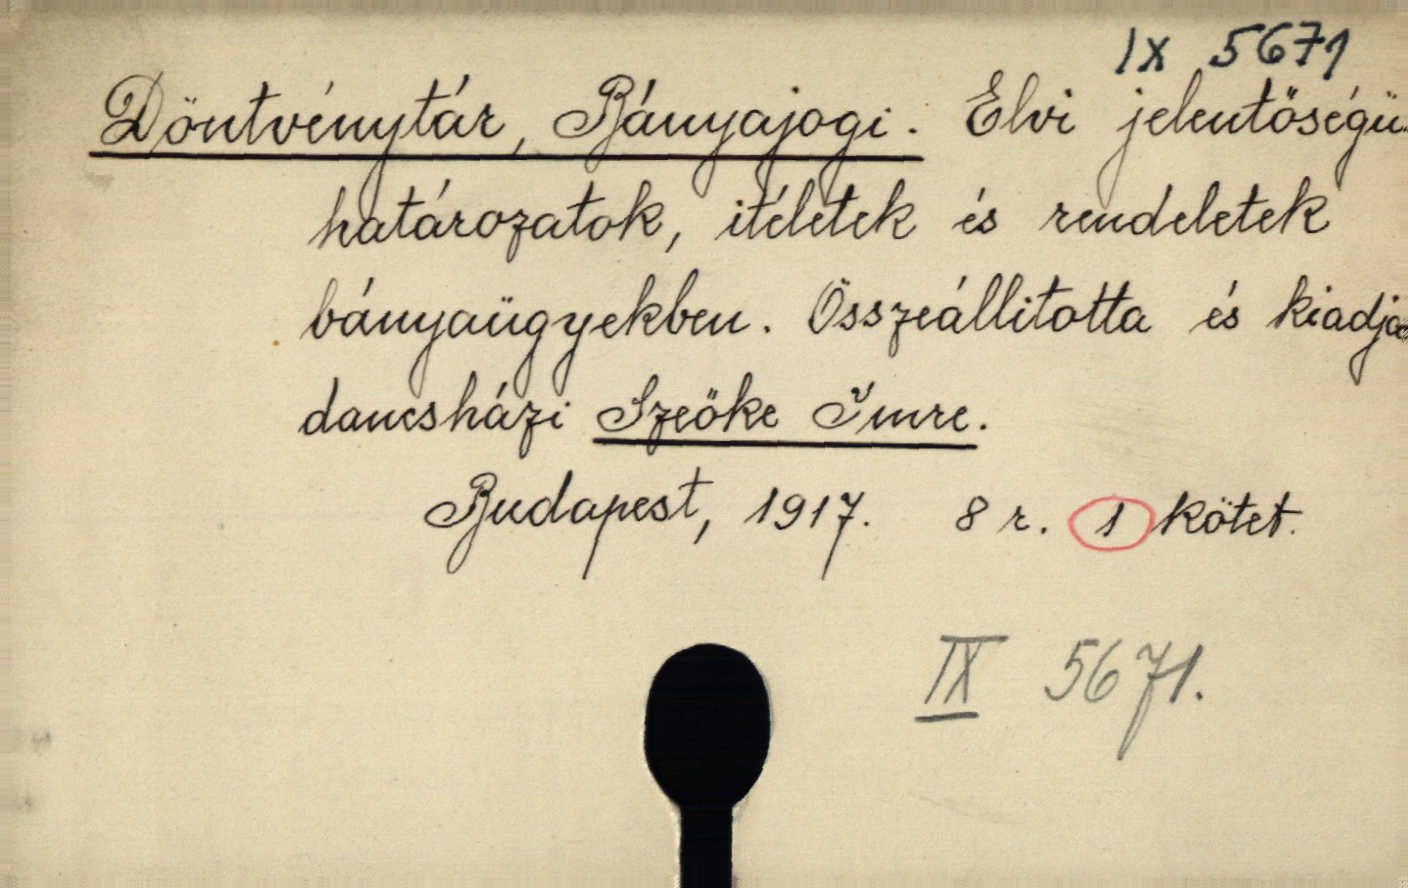 IX 5671
Döntvénytár, Bányajogi. Elvi jelentőségü
határozatok, itéletek és rendeletek
bányaügyekben. Összeállitotta és kiadja
dancsházi Szeőke Imre.
Budapest, 1917. 8 r. 1 kötet.
IX 5671.